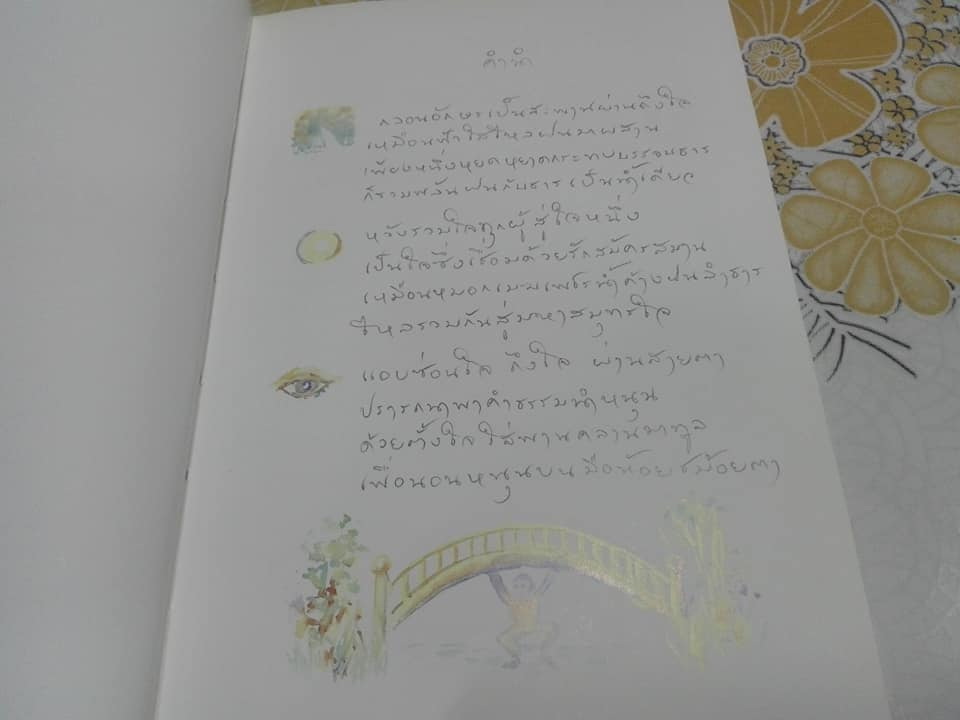 คำนำ
กลอนอักษรเป็นสะพานผ่านถึงใจ
เหมือนฟ้าใสไหลฝนมาผสาน
เพียงหนึ่งหยดหยาดกระทบบรรจบธาร
ก็รวมพลันฝนกับธารเป็นน้ำเดียว
หวังรวมใจทุกผู้สู่ใจหนึ่ง
เป็นใจซึ่งเชื่อมด้วยรักสมัครสมาน
เหมือนหมอกเมฆเพชรน้ำค้างฝนลำธาร
ไหลรวมกันสู่มหาสมุทรใจ
แอบซ่อนใจ ถึงใจ ผ่านสายตา
ปรารถนาพาคำธรรมนำหนุน
ด้วยตั้งใจใส่พานคลานมาทูล
เพื่อนอนหนุนบนมือน้อยชม้อยตา